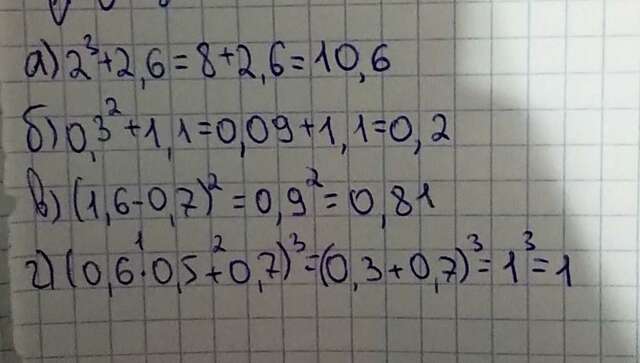 а) 2³+2,6=8+2,6=10,6
б) 0,3²+1,1=0,09+1,1=0,2
в) (1,6-0,7)²=0,9²=0,81
г) (0,6¹·0,5+²0,7)³=(0,3+0,7)³=1³=1